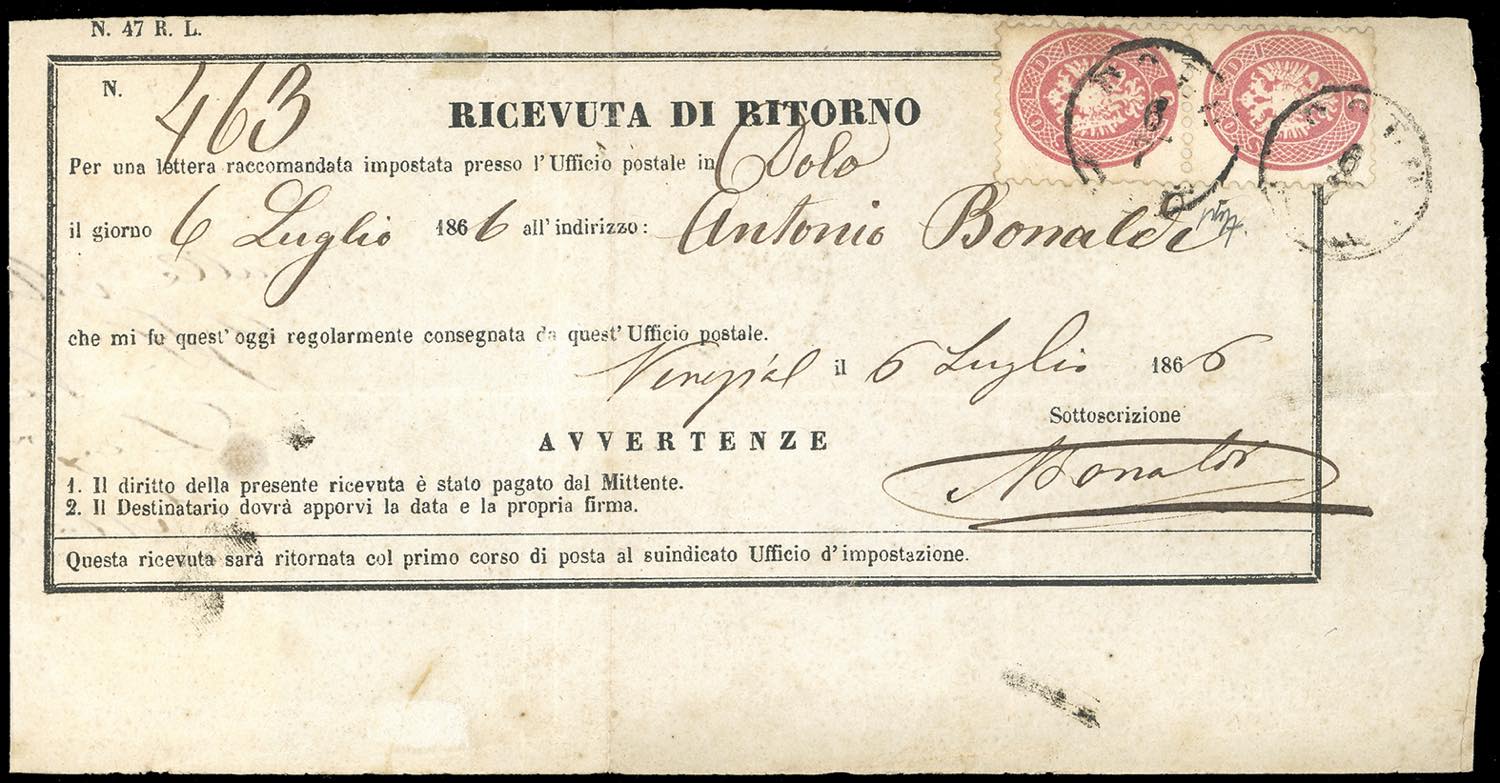 N. 47 R. L.
N. 463
RICEVUTA DI RITORNO
Per una lettera raccomandata impostata presso l'Ufficio postale in Dolo
il giorno 6 Luglio 1866 all'indirizzo: Antonio Bonaldi
che mi fu quest'oggi regolarmente consegnata da quest'Ufficio postale.
il 6 Luglio 1866
Sottoscrizione
Bonaldi
AVVERTENZE
1. Il diritto della presente ricevuta è stato pagato dal Mittente.
2. Il Destinatario dovrà apporvi la data e la propria firma.
Questa ricevuta sarà ritornata col primo corso di posta al suindicato Ufficio d'impostazione.